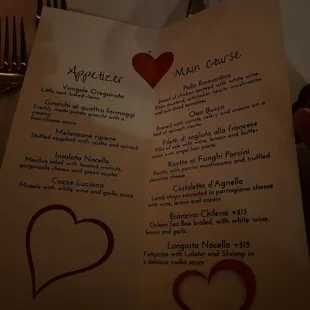 Appetizer
Vongole Oreganata
Little neck baked clams
Gnocchi ai quattro formaggi
Freshly made potato gnocchi with a
creamy
fourcheese sauce
Melanzane ripiene
Stuffed eggplant with ricotta and spinach
Insalata Nocello
Nocello salad with toasted walnuts,
gorgonzola cheese and green apples
Cozze Luciana
Mussels with white wine and garlic sauce
Main Course
Pollo Romantico
Breast of chicken sautéed with white wine,
Dijon mustard, artichoke hearts, mushrooms
and sundried tomatoes
Osso Bucco
Braised with carrots, celery and onions on a
bed of spinach risotto
Filetti di sogliola alla francese
Filet of sole with wine, lemon and butter
sauce over angel hair pasta
Risotto ai Funghi Porcini
Risotto with porcini mushrooms and truffled
pecorino cheese
Costoletta d'Agnello
Lamb chops encrusted in parmigiano cheese
with wine, lemon and capers
Branzino Chileno +$15
Chilean Sea Bass broiled, with white wine,
lemon and garlic
Langosta Nocello +$15
Fettuccine with Lobster and Shrimp in
a delicious vodka sauce